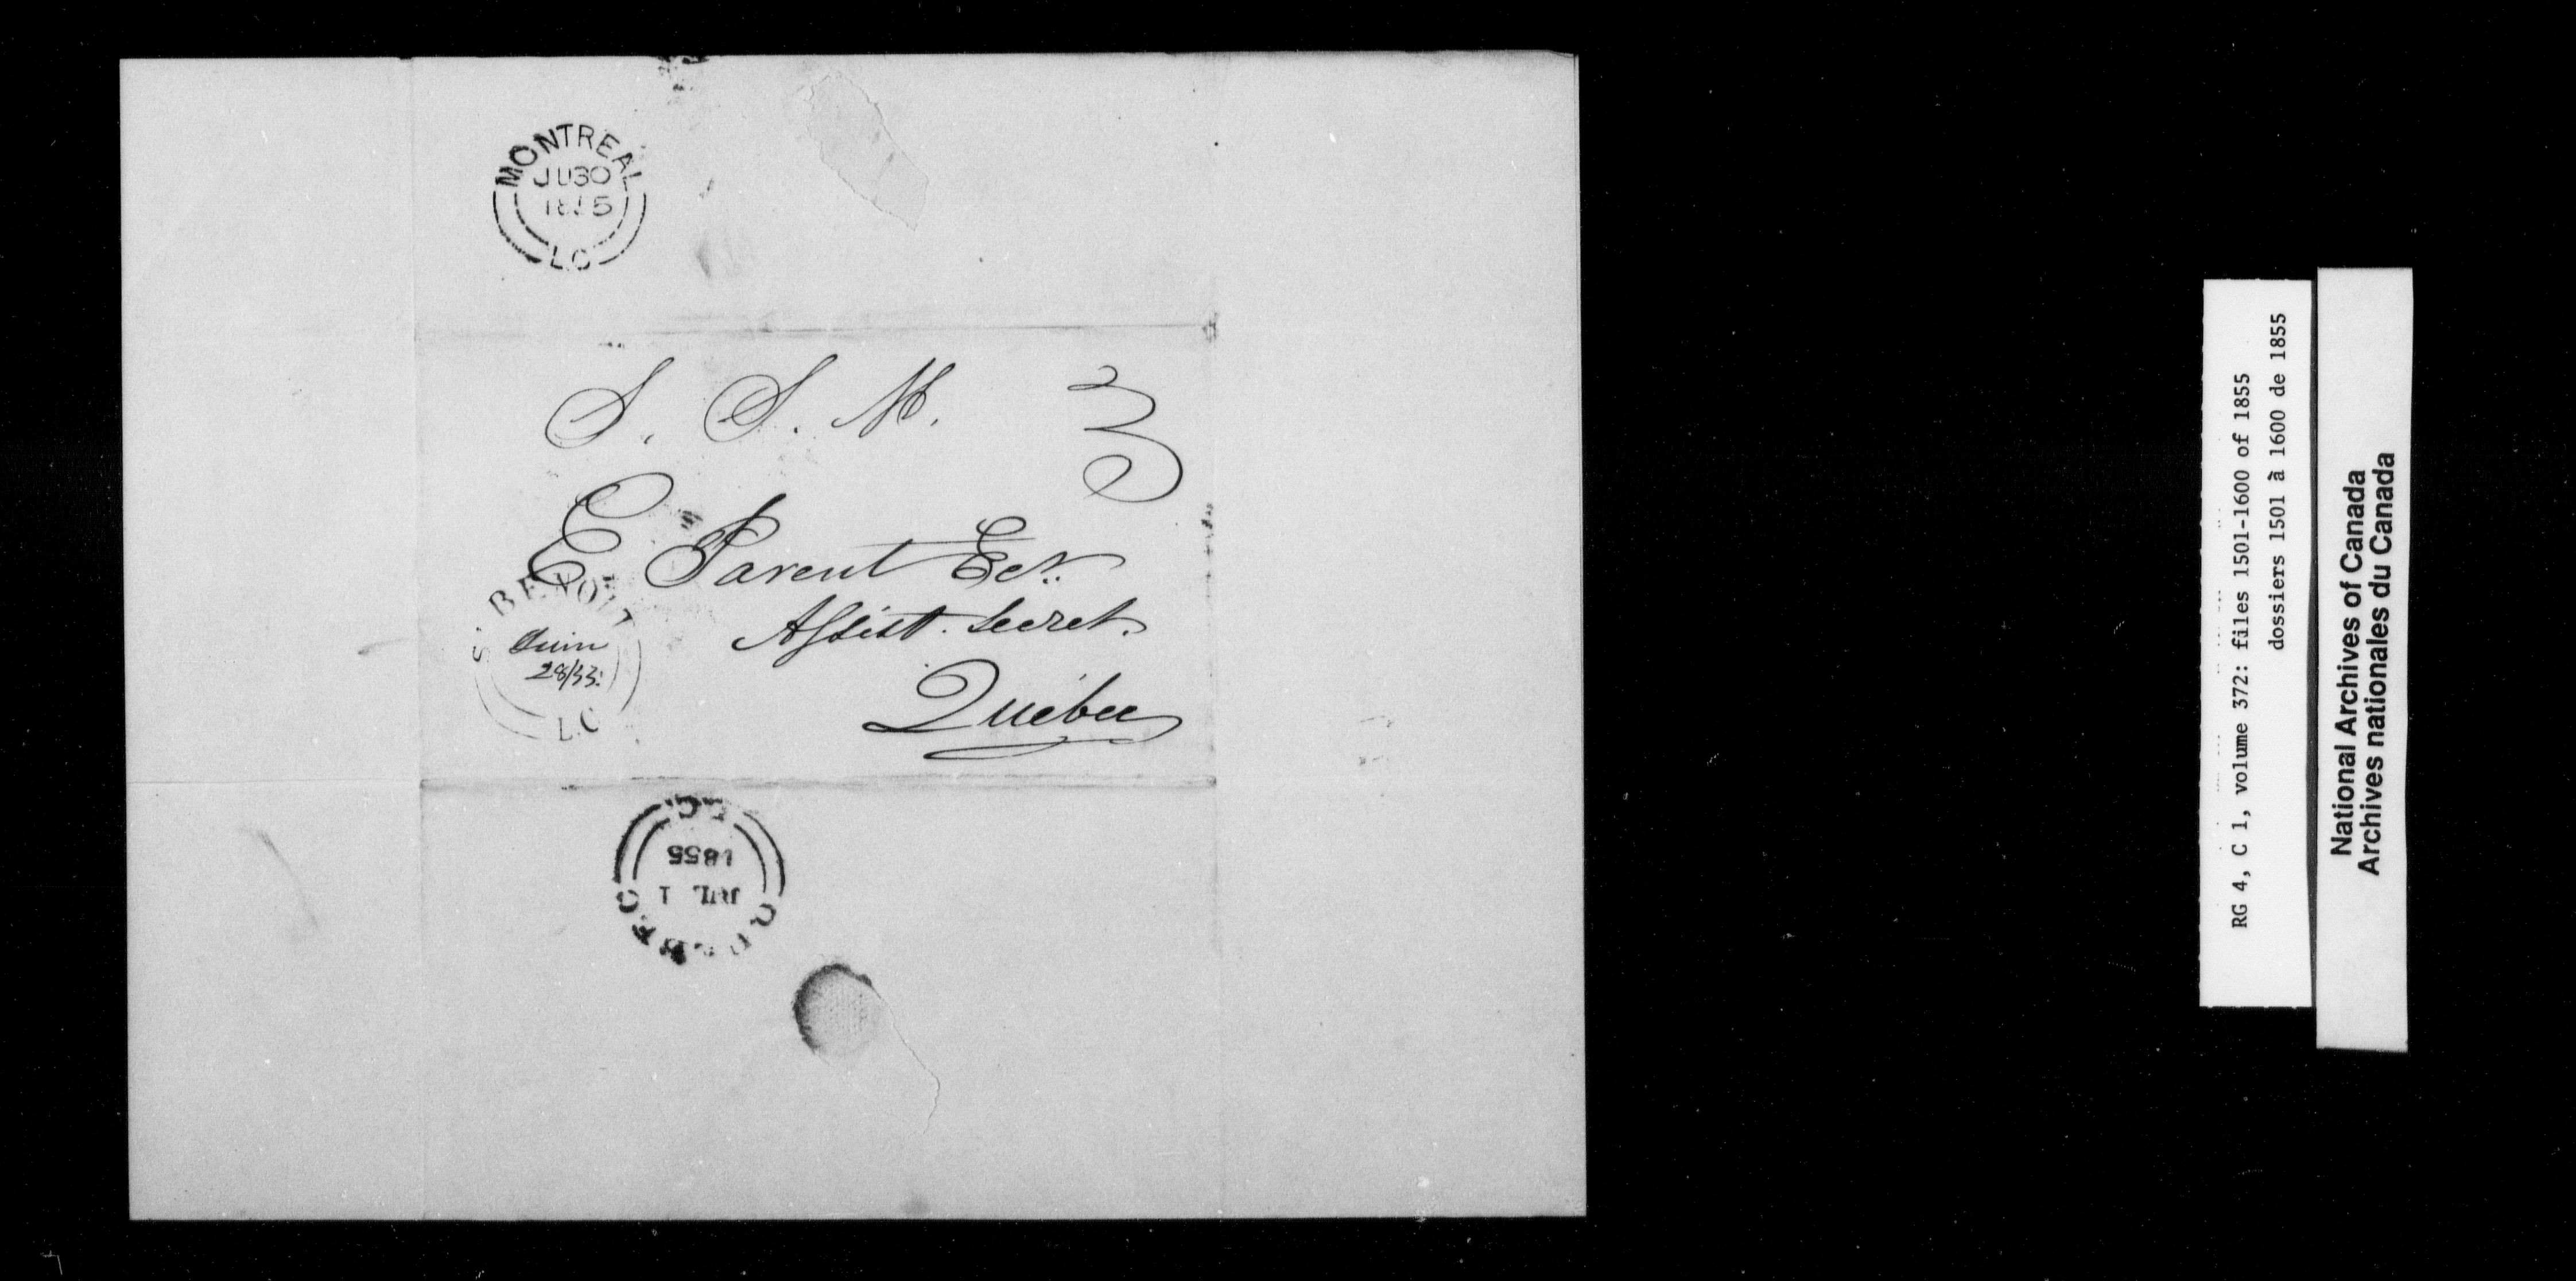 MONTREAL
JU 30
1855
L.C
S. S. M.
3
E Parent Ecr.
Assist. Secret.
Québec
ST BENOIT
Juin
28/55
L.C
QUEBEC
JUL 1
1855
L.C.
RG 4, C 1, volume 372: files 1501-1600 of 1855
dossiers 1501 à 1600 de 1855
National Archives of Canada
Archives nationales du Canada